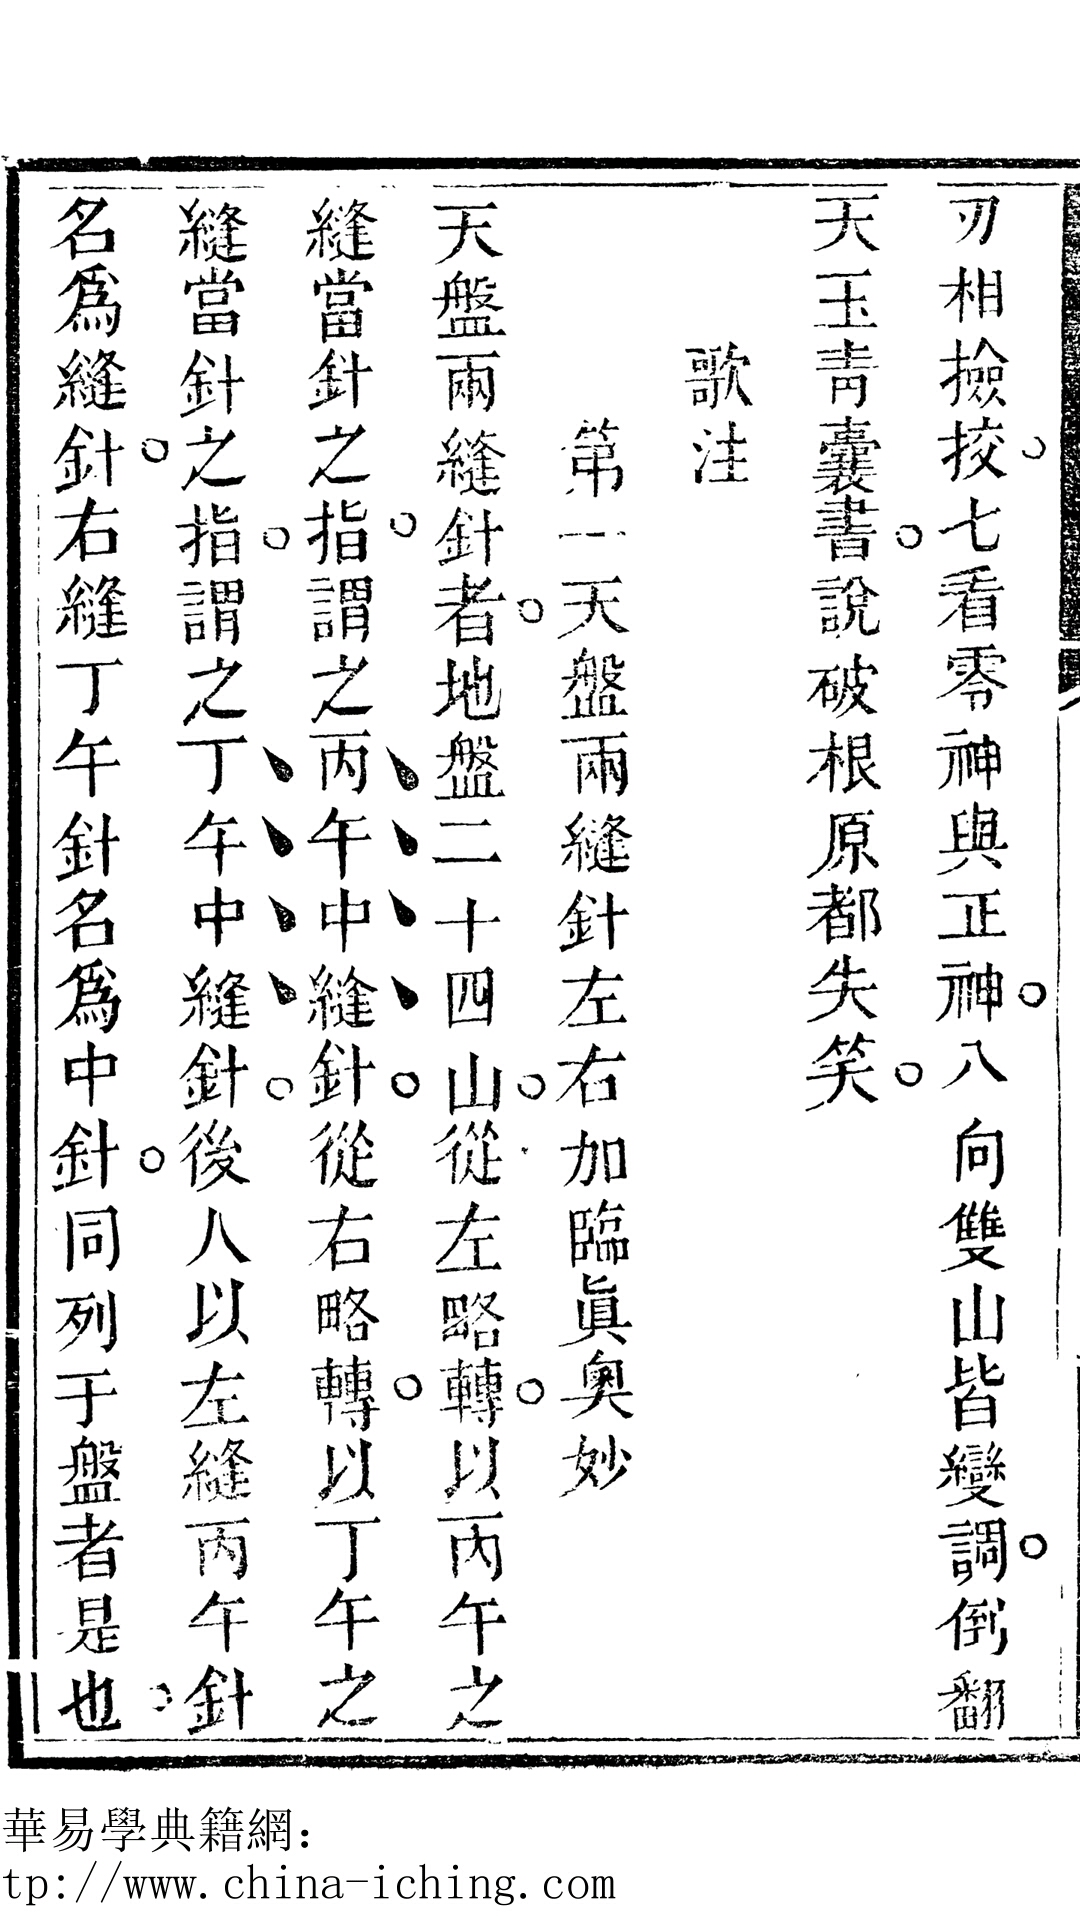 刃相撿挍七看零神與正神八向雙山皆變調倒翻
天玉青囊書說破根原都失笑
歌注
第一天盤兩縫針左右加臨眞奧妙
天盤兩縫針者地盤二十四山從左略轉以丙午之
縫當針之指謂之丙午中縫針從右略轉以丁午之
縫當針之指謂之丁午中縫針後人以左縫丙午針
名爲縫針右縫丁午針名爲中針同列于盤者是也
華易學典籍網：
tp://www.china-iching.com